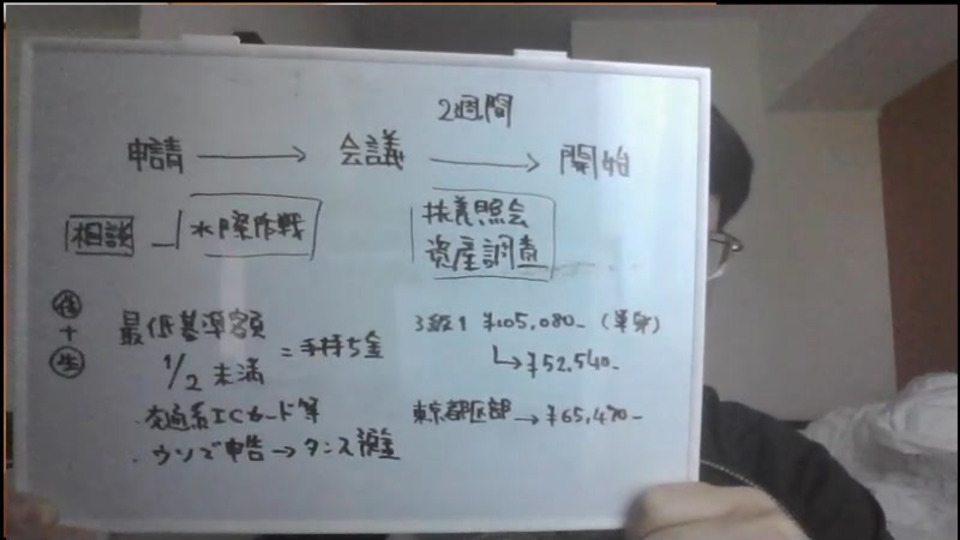 2週間
申請 → 会議 → 開始
相談 水際作戦
扶養照会
資産調査
住
+
生
最低基準額
1/2 未満
= 手持ち金
3級1 ¥105,080- (単身)
↳ ¥52,540-
・交通系ICカード等
東京都区部 → ¥65,470-
・ウソで申告 → タンス預金